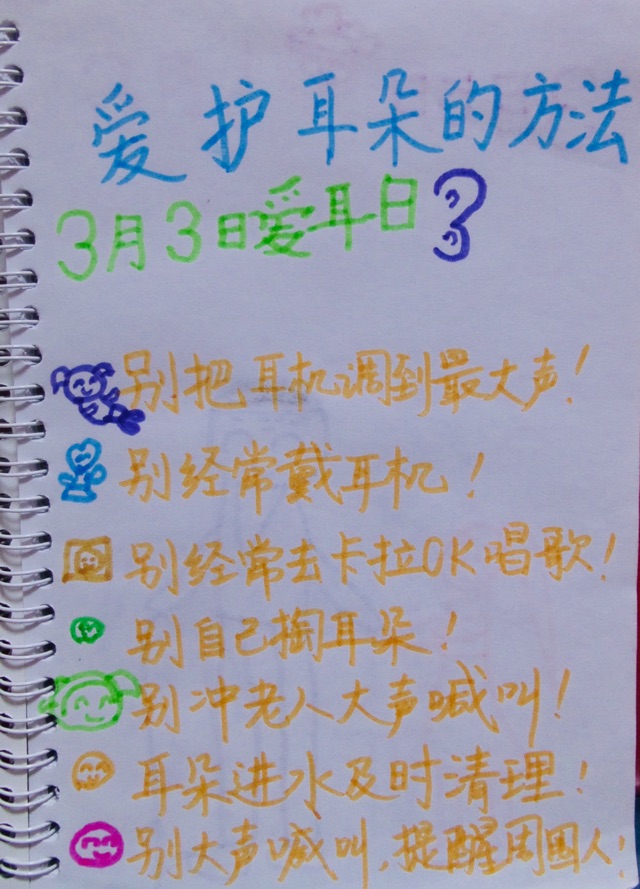 爱护耳朵的方法
3月3日爱耳日
别把耳机调到最大声！
别经常戴耳机！
别经常去卡拉OK唱歌！
别自己掏耳朵！
别冲老人大声喊叫！
耳朵进水及时清理！
别大声喊叫，提醒周围人！